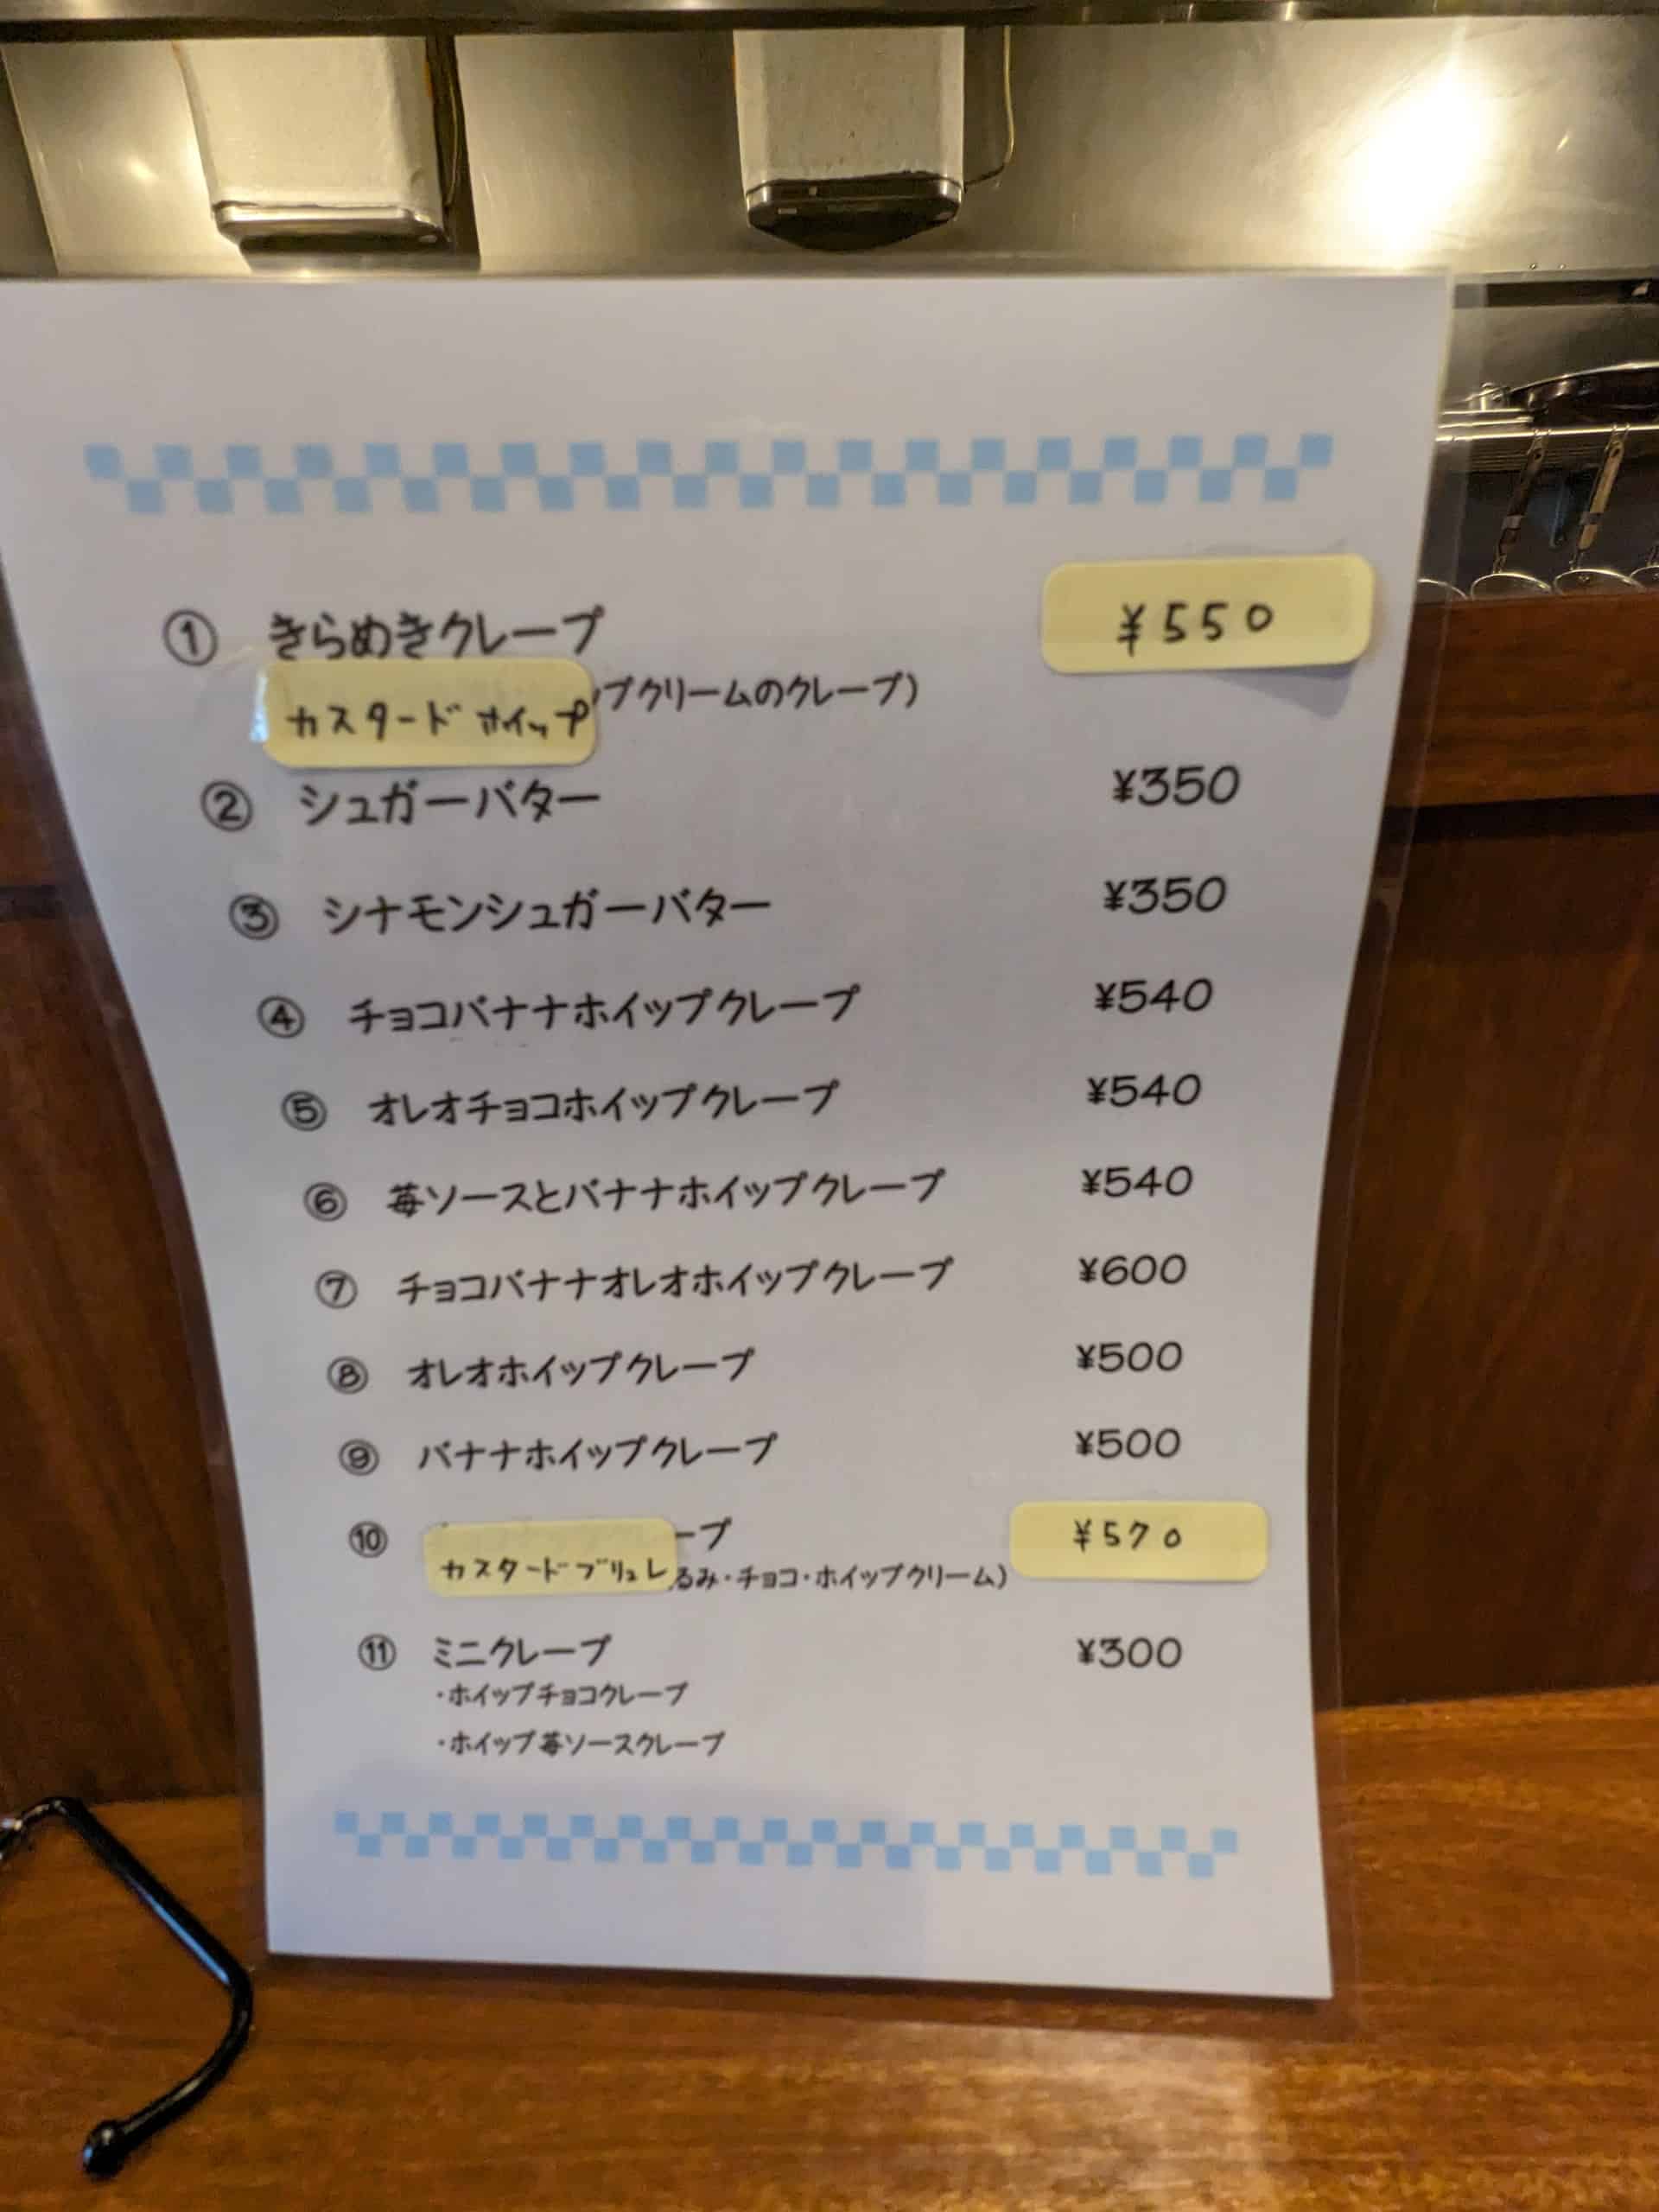 ① きらめきクレープ ¥550
カスタードホイップ プクリームのクレープ)
② シュガーバター ¥350
③ シナモンシュガーバター ¥350
④ チョコバナナホイップクレープ ¥540
⑤ オレオチョコホイップクレープ ¥540
⑥ 苺ソースとバナナホイップクレープ ¥540
⑦ チョコバナナオレオホイップクレープ ¥600
⑧ オレオホイップクレープ ¥500
⑨ バナナホイップクレープ ¥500
⑩ ープ ¥570
カスタードブリュレ るみ・チョコ・ホイップクリーム)
⑪ ミニクレープ ¥300
・ホイップチョコクレープ
・ホイップ苺ソースクレープ